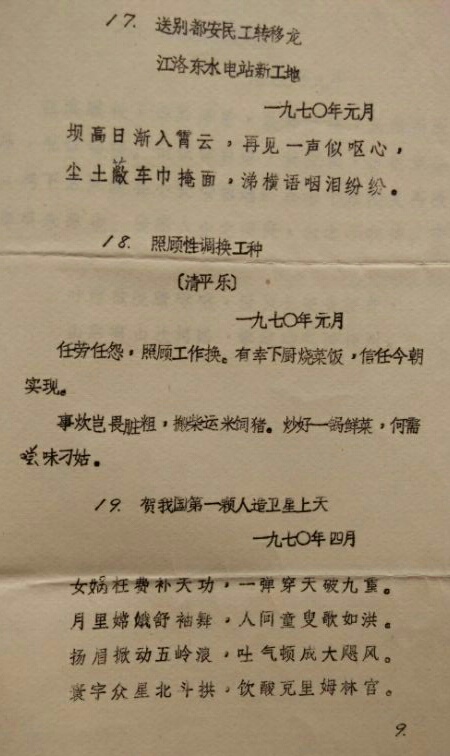 17. 送别都安民工转移龙
江洛东水电站新工地
一九七〇年元月
坝高日渐入霄云，再见一声似呕心，
尘土蔽车巾掩面，涕横语咽泪纷纷。
18. 照顾性调换工种
〔清平乐〕
一九七〇年元月
任劳任怨，照顾工作换。有幸下厨烧菜饭，信任今朝
实现。
事炊岂畏脏粗，搬柴运米饲猪。炒好一锅鲜菜，何需
尝味刁姑。
19. 贺我国第一颗人造卫星上天
一九七〇年四月
女娲枉费补天功，一弹穿天破九重。
月里嫦娥舒袖舞，人间童叟歌如洪。
扬眉掀动五岭浪，吐气顿成大飓风。
寰宇众星北斗拱，饮酸克里姆林宫。
9.